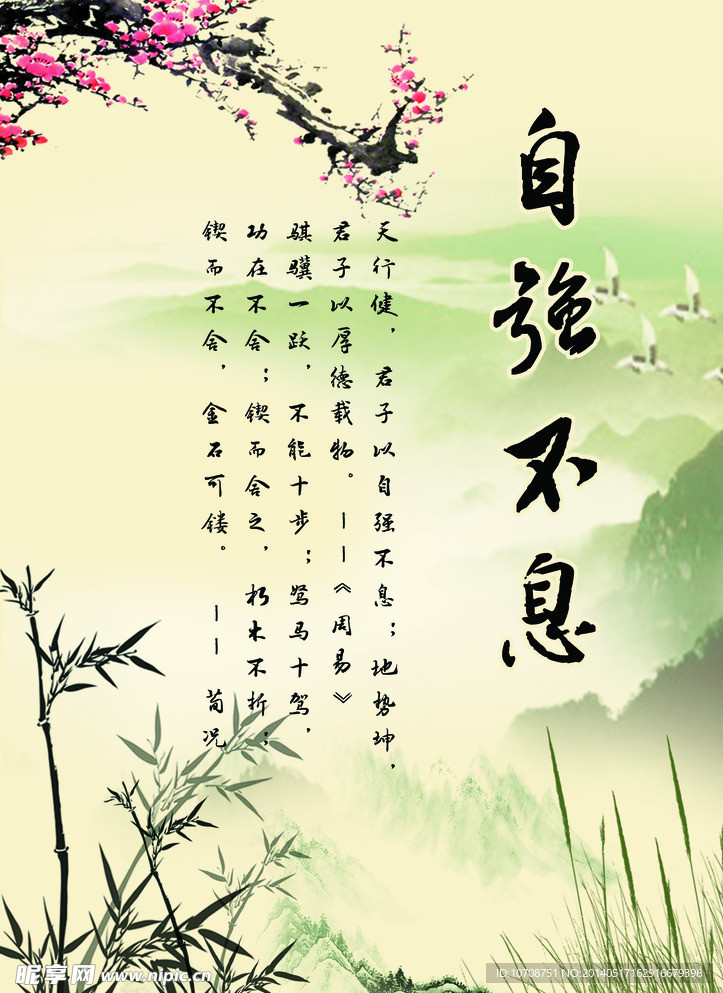 自强不息
天行健，君子以自强不息；地势坤，
君子以厚德载物。——《周易》
骐骥一跃，不能十步；驽马十驾，
功在不舍；锲而舍之，朽木不折；
锲而不舍，金石可镂。——荀况
昵享网 www.nipic.cn
ID:10708751 NO:20140517162916679396